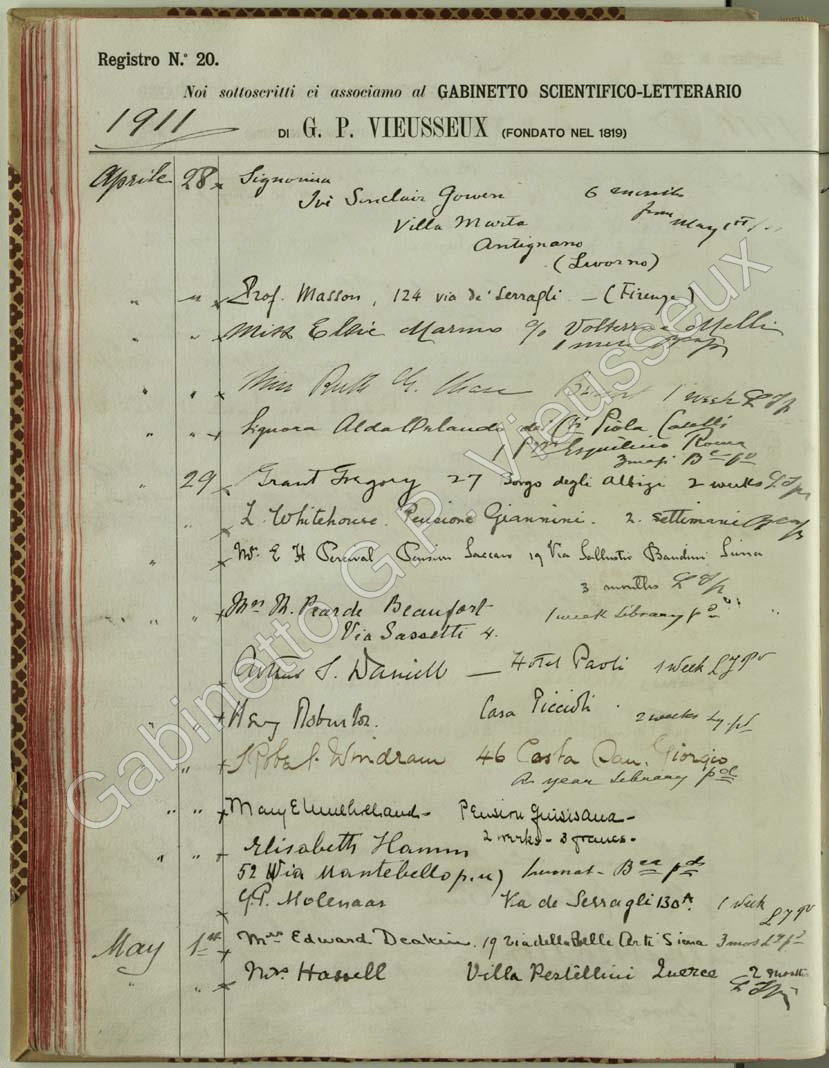 Registro N.° 20.
Noi sottoscritti ci associamo al GABINETTO SCIENTIFICO-LETTERARIO
1911
DI G. P. VIEUSSEUX (FONDATO NEL 1819)
Aprile 28 Signorina
Sinclair Gowen 6 months
Villa Marta from May 1st
Antignano
(Livorno)
" " Prof. Masson, 124 via de' Serragli - (Firenze)
" " Miss Elsie Marino c/o Volterra e Melli
1 mese
" " Miss Ruth G. Chase 1 week
" " Signora Alda Orlando dei Piola Caselli
Esquilino Roma
3 mesi
" 29 Grant Gregory 27 Borgo degli Albizi 2 weeks
L. Whitehouse. Pensione Giannini. 2. settimane
" E H Percival Pension Saccaro 19 Via Sallustio Bandini Siena
3 months
" " Mrs M. Pear de Beaufort 1 week Library pd "
Via Sassetti 4.
" Arthur S. Daniell — Hotel Paoli 1 week
" " Casa Piccioli. 2 weeks
" Windram 46 Costa San. Giorgio
A year library pd
" " Mary E Mulholland - Pension
2 weeks - 3 francs -
" " Elisabeth Hamm
52 Via Montebello p. u)
G.P. Molenaar Via de Serragli 130A. 1 week
May 1st Mrs Edward Deakin. 19 via delle Belle Arti Siena 3 mos
" " Mrs Hassell Villa Pestellini Querce 2 months
Gabinetto G.P. Vieusseux